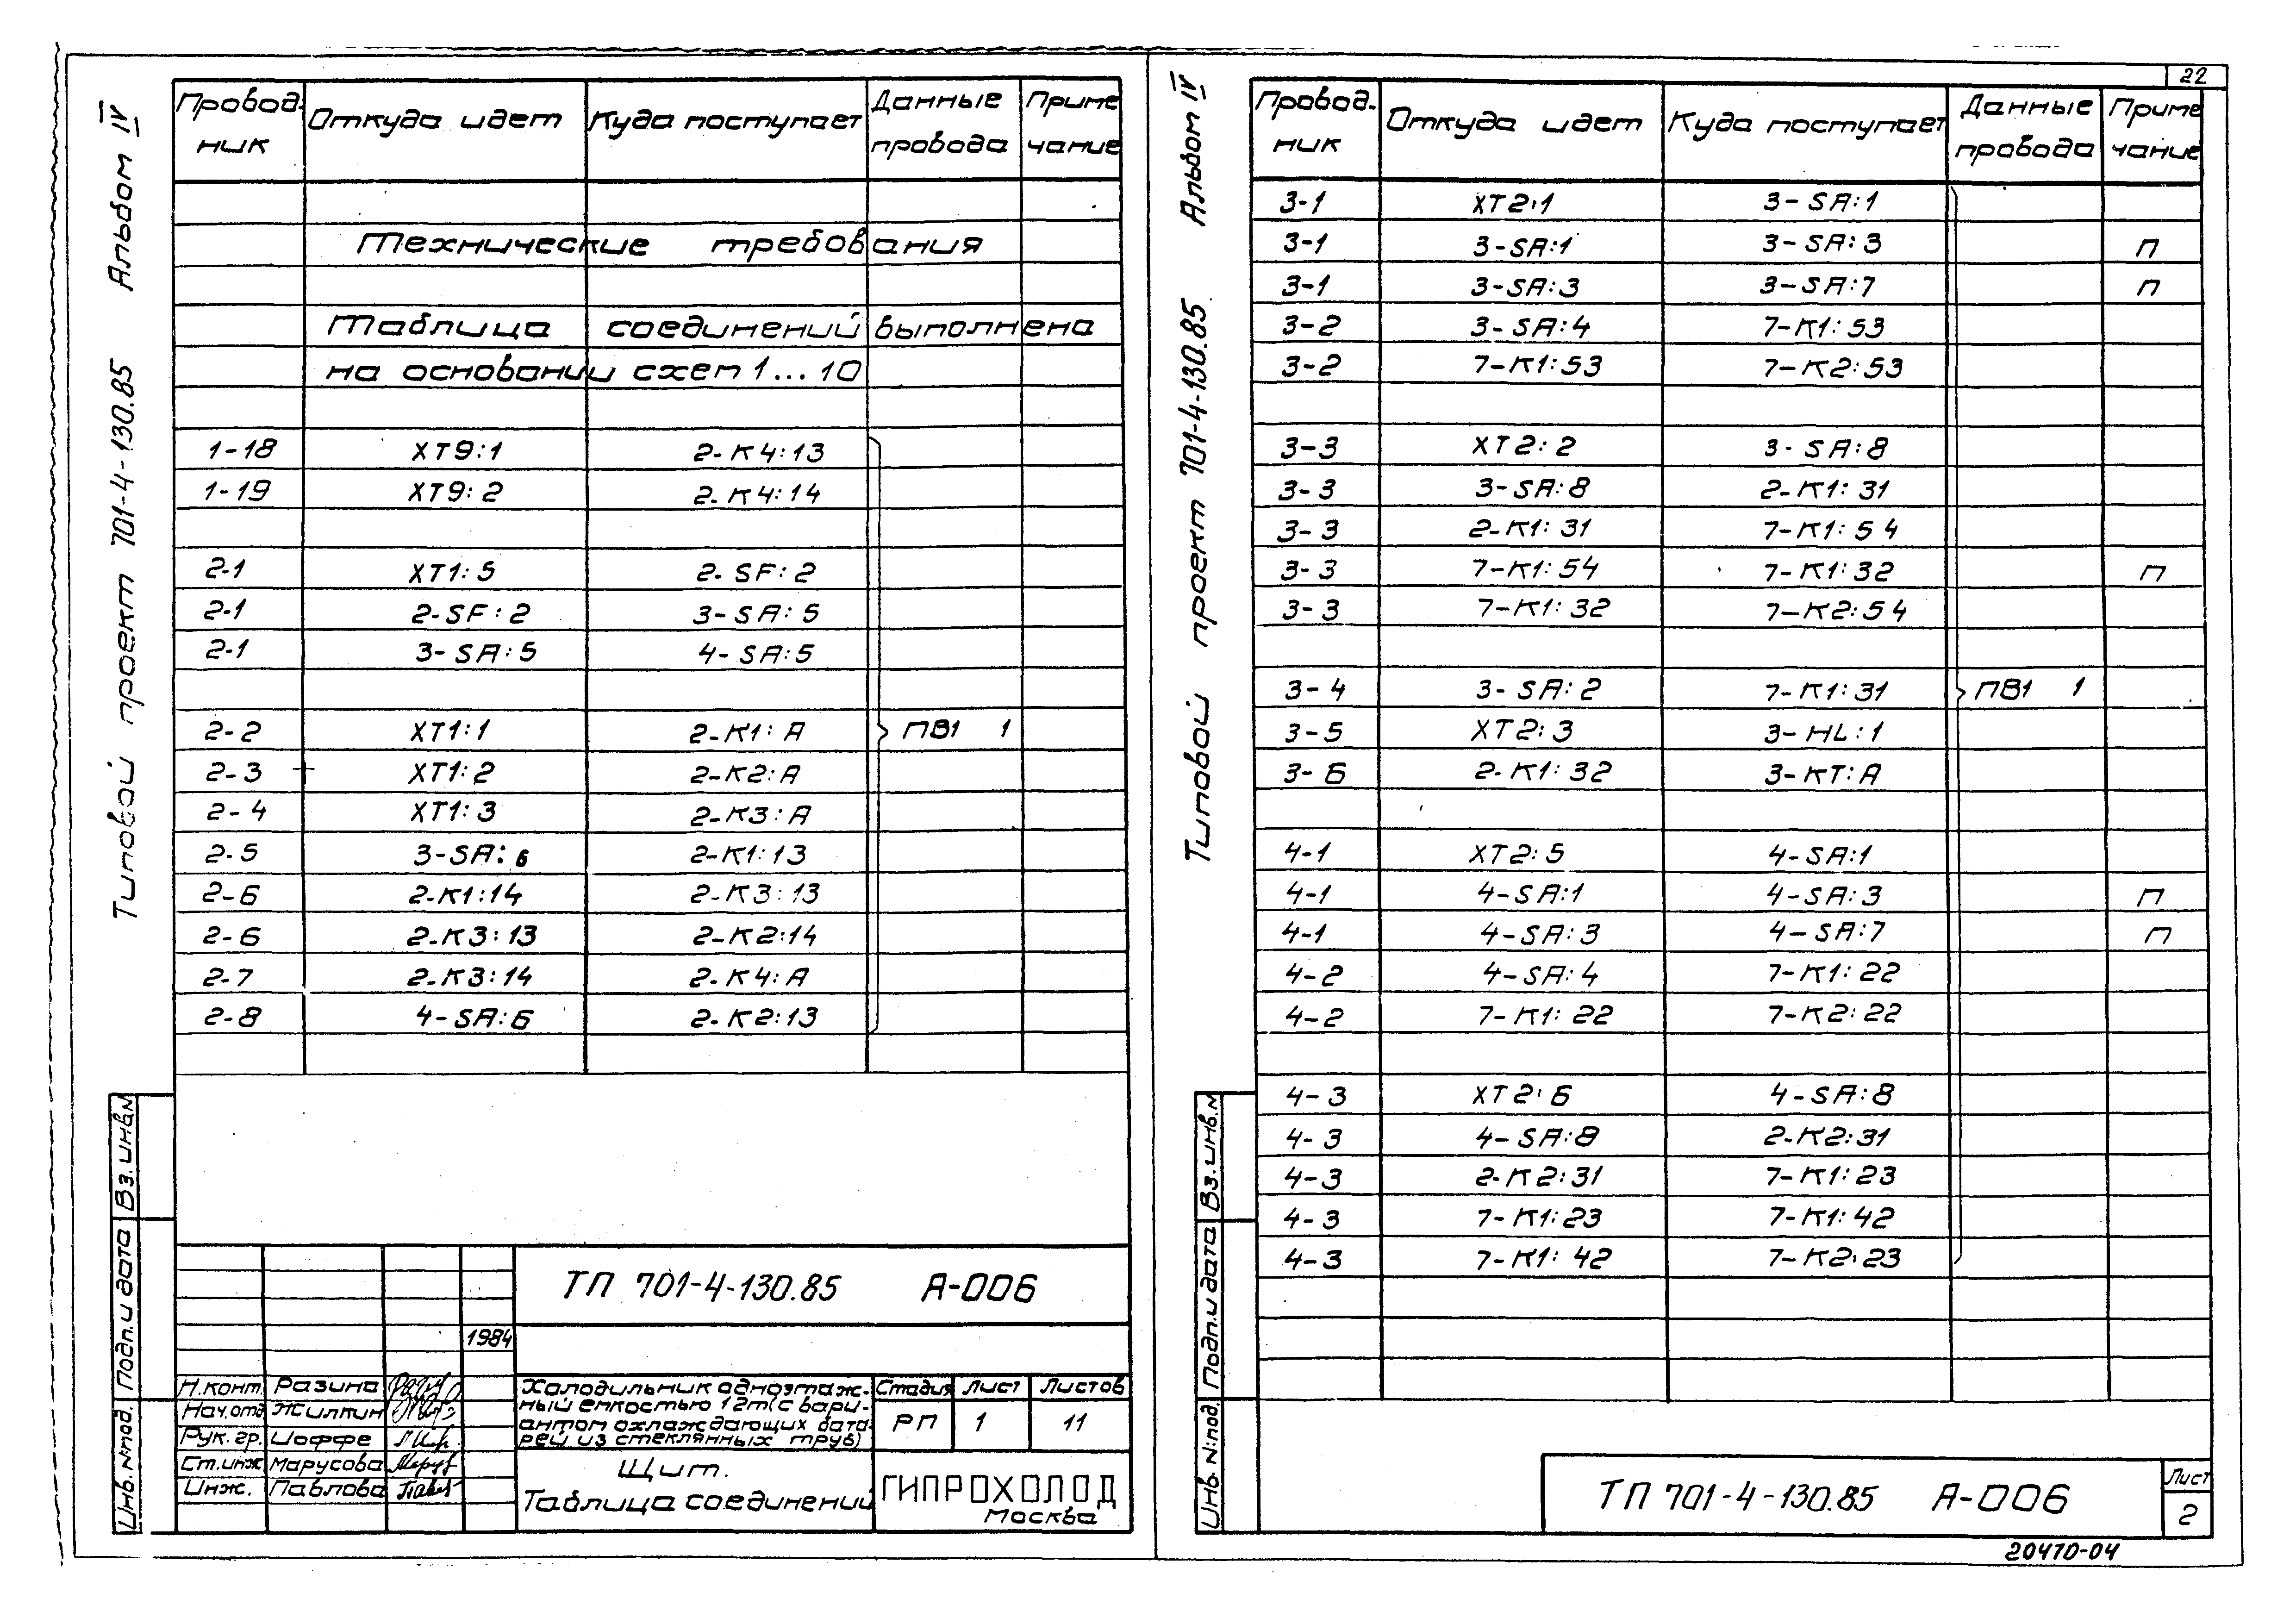 22
Альбом IV
Типовой проект 701-4-130.85
Провод- ник | Откуда идет | Куда поступает | Данные провода | Приме чание
Технические требования
Таблица соединений выполнена
на основании схем 1...10
1-18 XT9:1 2-К4:13
1-19 XT9:2 2-К4:14
2-1 XT1:5 2-SF:2
2-1 2-SF:2 3-SA:5
2-1 3-SA:5 4-SA:5
2-2 XT1:1 2-К1:А ПВ1 1
2-3 XT1:2 2-К2:А
2-4 XT1:3 2-К3:А
2-5 3-SA:6 2-К1:13
2-6 2-К1:14 2-К3:13
2-6 2-К3:13 2-К2:14
2-7 2-К3:14 2-К4:А
2-8 4-SA:6 2-К2:13
Вз.инв.N
Подп.и дата
Инв.Nпод.
ТП 701-4-130.85 А-006
1984
Н.конт. Разина
Нач.отд Жилкин
Рук.гр. Иоффе
Ст.инж Марусова
Инж. Павлова
Холодильник одноэтаж-
ный емкостью 12т(с вари-
антом охлаждающих бата-
рей из стеклянных труб)
Стадия Лист Листов
РП 1 11
Щит.
Таблица соединений
ГИПРОХОЛОД
Москва
Альбом IV
Типовой проект 701-4-130.85
Провод- ник | Откуда идет | Куда поступает | Данные провода | Приме чание
3-1 XT2:1 3-SA:1
3-1 3-SA:1 3-SA:3 п
3-1 3-SA:3 3-SA:7 п
3-2 3-SA:4 7-К1:53
3-2 7-К1:53 7-К2:53
3-3 XT2:2 3-SA:8
3-3 3-SA:8 2-К1:31
3-3 2-К1:31 7-К1:54
3-3 7-К1:54 7-К1:32 п
3-3 7-К1:32 7-К2:54
3-4 3-SA:2 7-К1:31 ПВ1 1
3-5 XT2:3 3-HL:1
3-6 2-К1:32 3-КТ:А
4-1 XT2:5 4-SA:1
4-1 4-SA:1 4-SA:3 п
4-1 4-SA:3 4-SA:7 п
4-2 4-SA:4 7-К1:22
4-2 7-К1:22 7-К2:22
4-3 XT2:6 4-SA:8
4-3 4-SA:8 2-К2:31
4-3 2-К2:31 7-К1:23
4-3 7-К1:23 7-К1:42
4-3 7-К1:42 7-К2:23
Вз.инв.N
Подп.и дата
Инв.N:под.
ТП 701-4-130.85 А-006
Лист
2
20470-04